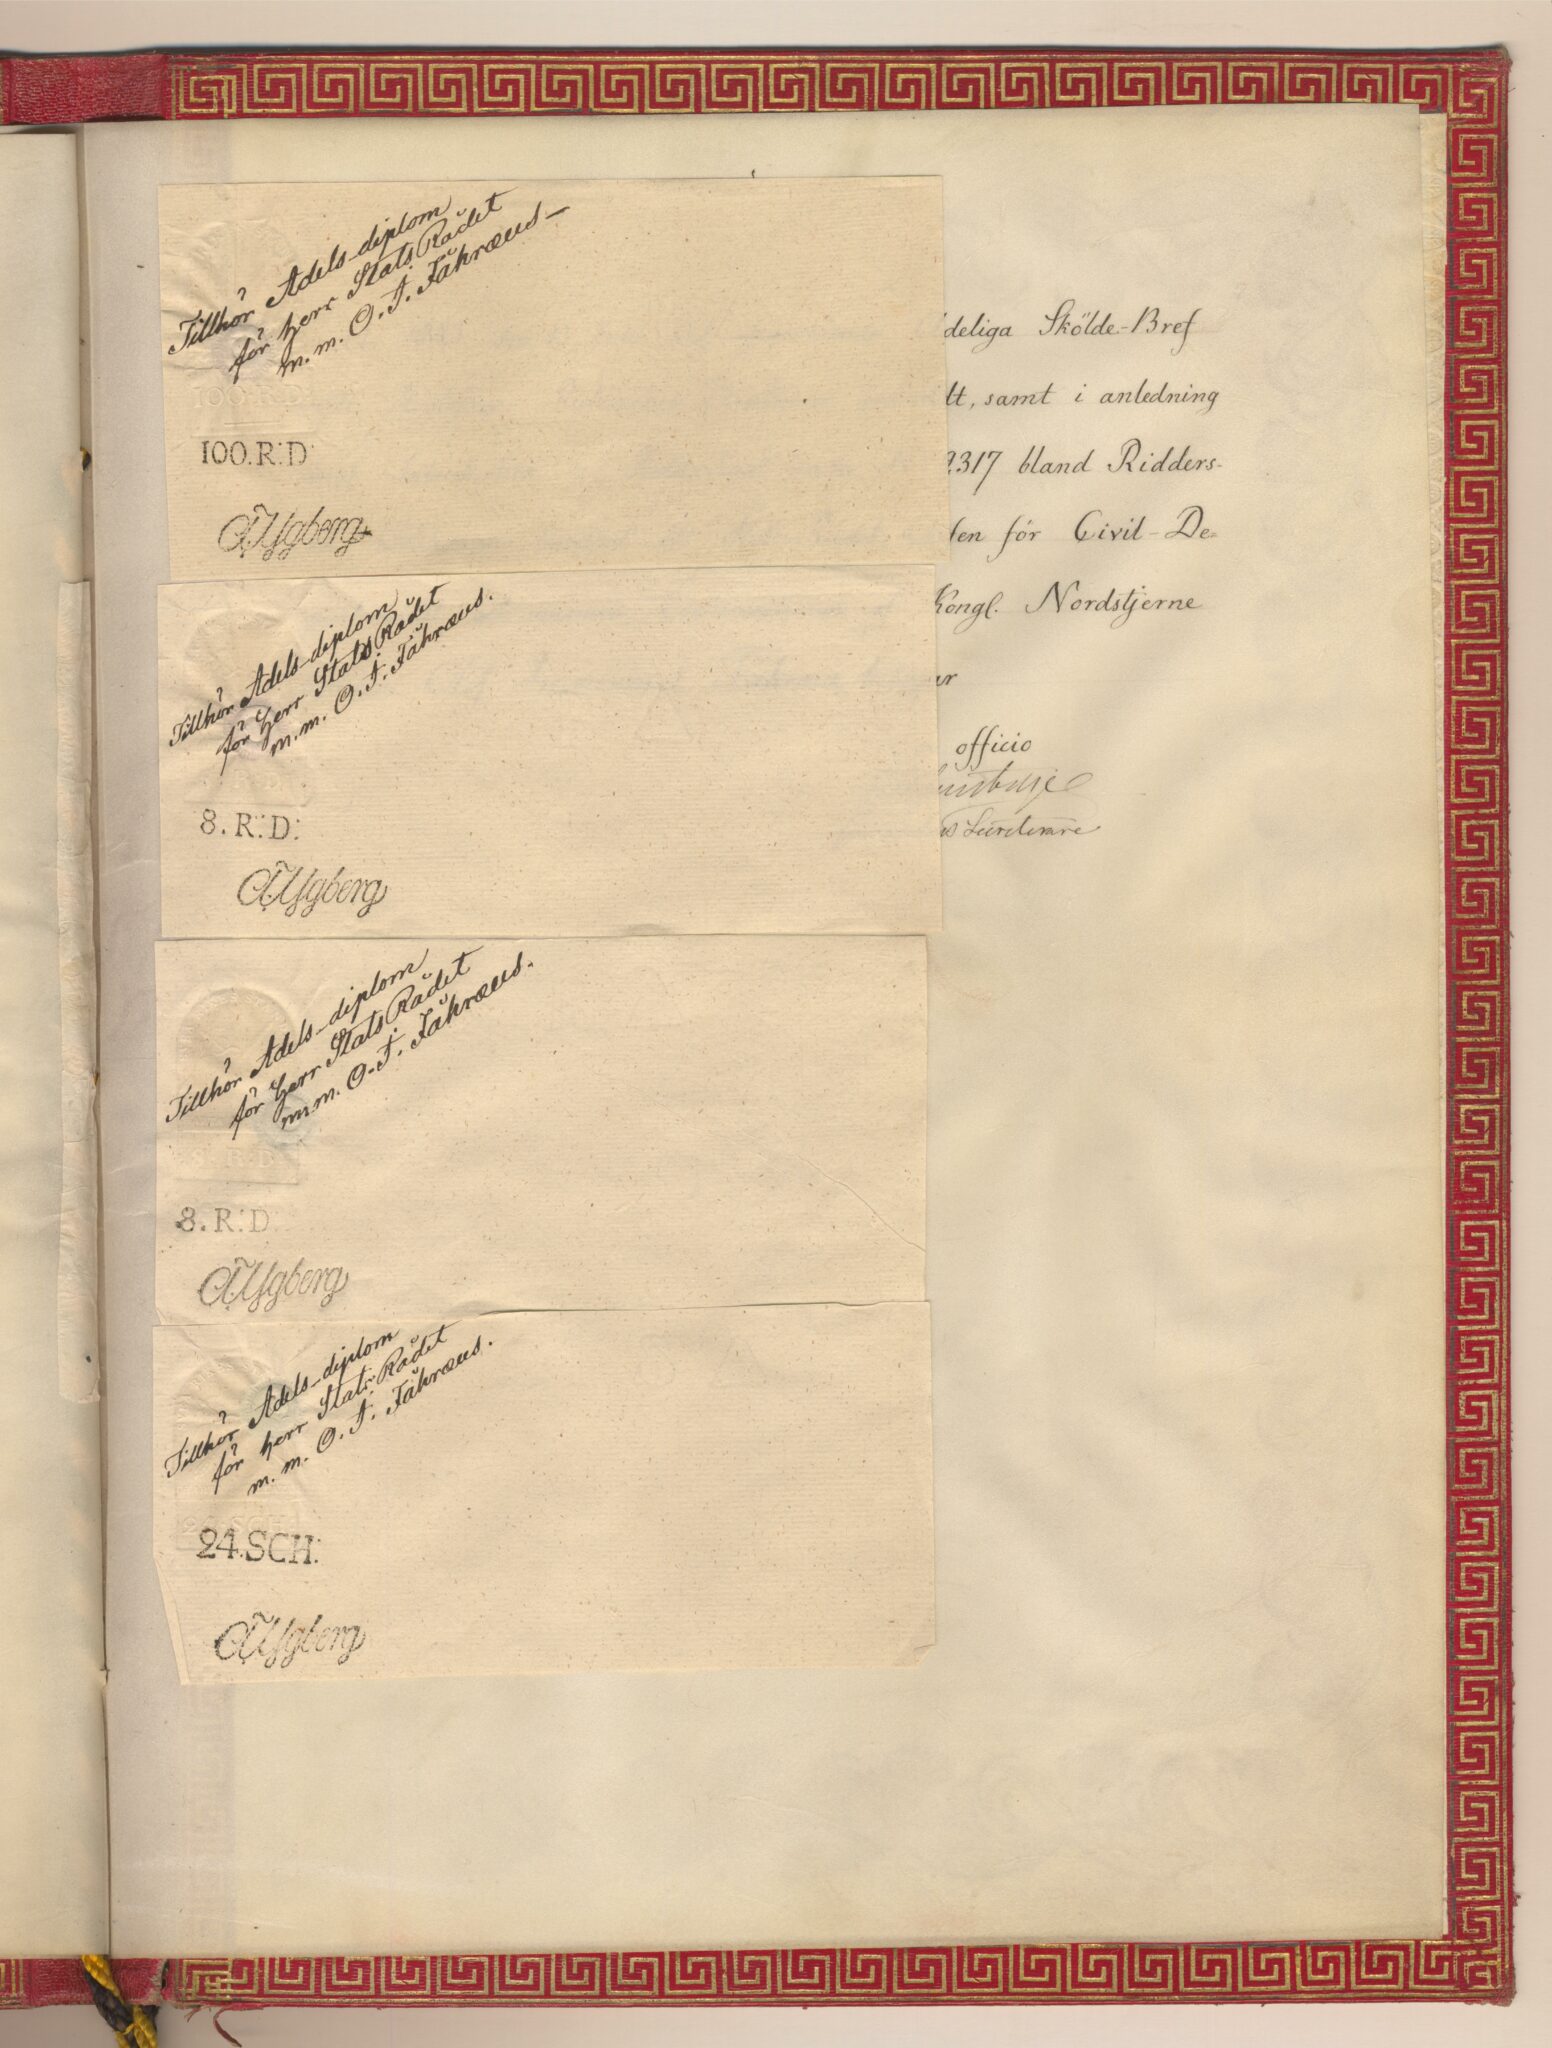 Tillhör Adels-diplom
för herr Stats Rådet
m. m. O. I. Fåhræus –
100.R.D.
100.R:D:
C.T. Ygberg
Tillhör Adels-diplom
för herr Stats Rådet
m. m. O. I. Fåhræus.
8.R:D:
C.T. Ygberg
Tillhör Adels-diplom
för herr Stats Rådet
m. m. O. I. Fåhræus.
8.R.D.
8.R:D
C.T. Ygberg
Tillhör Adels-diplom
för herr Stats Rådet
m. m. O. I. Fåhræus.
24.SCH.
24.SCH:
C.T. Ygberg
deliga Skölde-Bref
tt, samt i anledning
2317 bland Ridders-
den för Civil-De-
Kongl. Nordstjerne
ar
officio